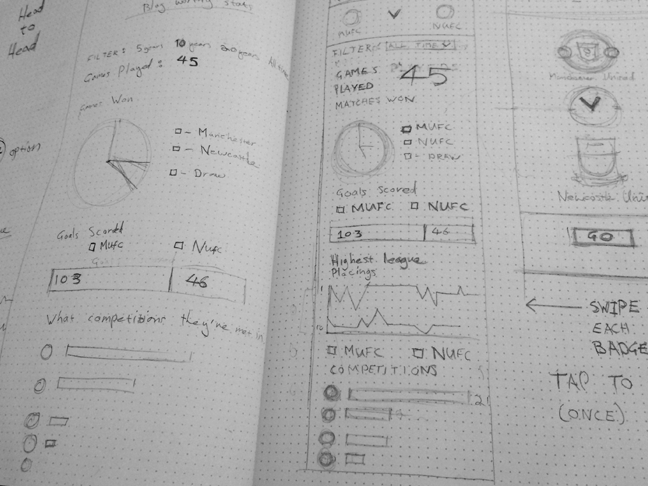 Head
to
Head
option
stats
FILTER: 5 years 10 years
Games Played: 45
Games Won
- Manchester
- Newcastle
- Draw
Goals Scored
MUFC NUFC
103 46
What competitions they've met in
MUFC V NUFC
FILTERS ALL TIME V
GAMES PLAYED 45
MATCHES WON
MUFC
NUFC
- DRAW
Goals scored
MUFC NUFC
103 46
Highest league
Placings
MUFC NUFC
COMPETITIONS
Manchester United
V
Newcastle
GO
← SWIPE
EACH
BADGE
TAP TO
(ONCE)